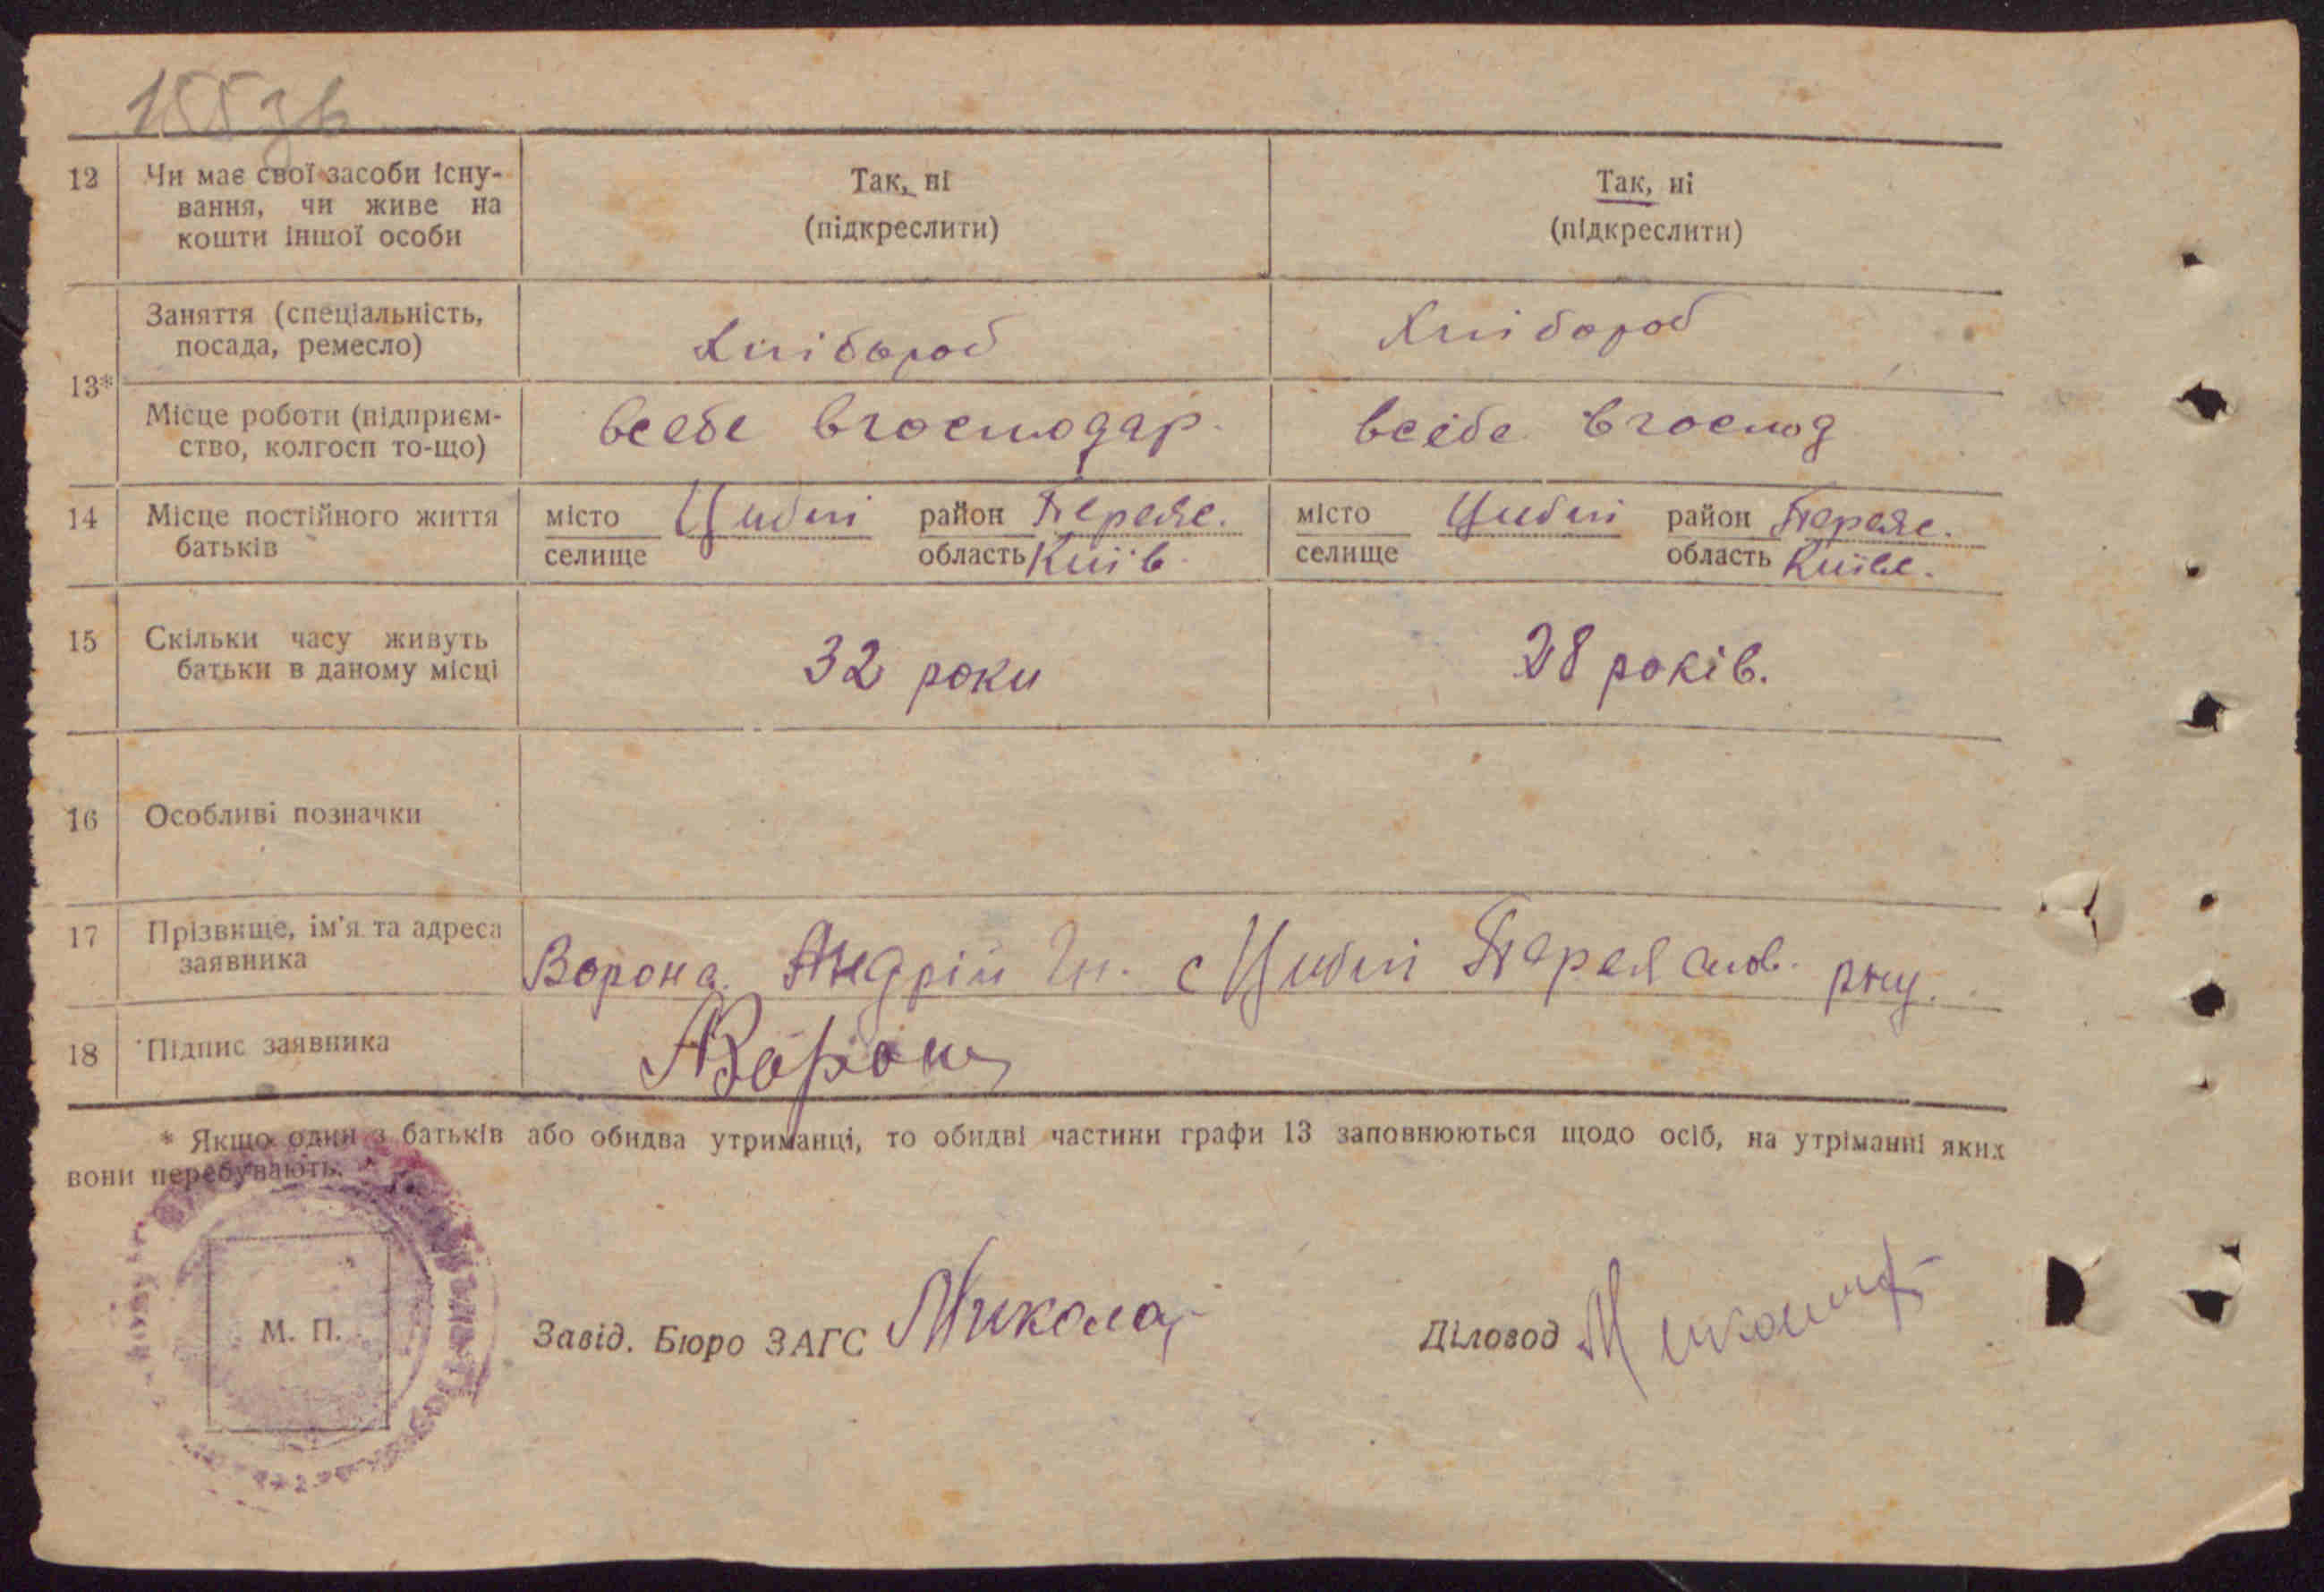 155зв
12 Чи має свої засоби існу-
вання, чи живе на
кошти іншої особи
Так, ні
(підкреслити)
Так, ні
(підкреслити)
13*
Заняття (спеціальність,
посада, ремесло)
Хлібороб
Хлібороб
Місце роботи (підприєм-
ство, колгосп то-що)
всебе вгосподар.
всебе вгоспод
14 Місце постійного життя
батьків
місто
селище
Циблі
район Переяс.
область Київ
місто
селище
Циблі
район Переяс.
область Київс.
15 Скільки часу живуть
батьки в даному місці
32 роки
28 років.
16 Особливі позначки
17 Прізвище, ім'я та адреса
заявника
Ворона Андрій с Циблі Переяслов. рну.
18 Підпис заявника
АВорона
* Якщо один з батьків або обидва утриманці, то обидві частини графи 13 заповнюються щодо осіб, на утріманні яких
вони перебувають.
М. П.
Завід. Бюро ЗАГС
Діловод